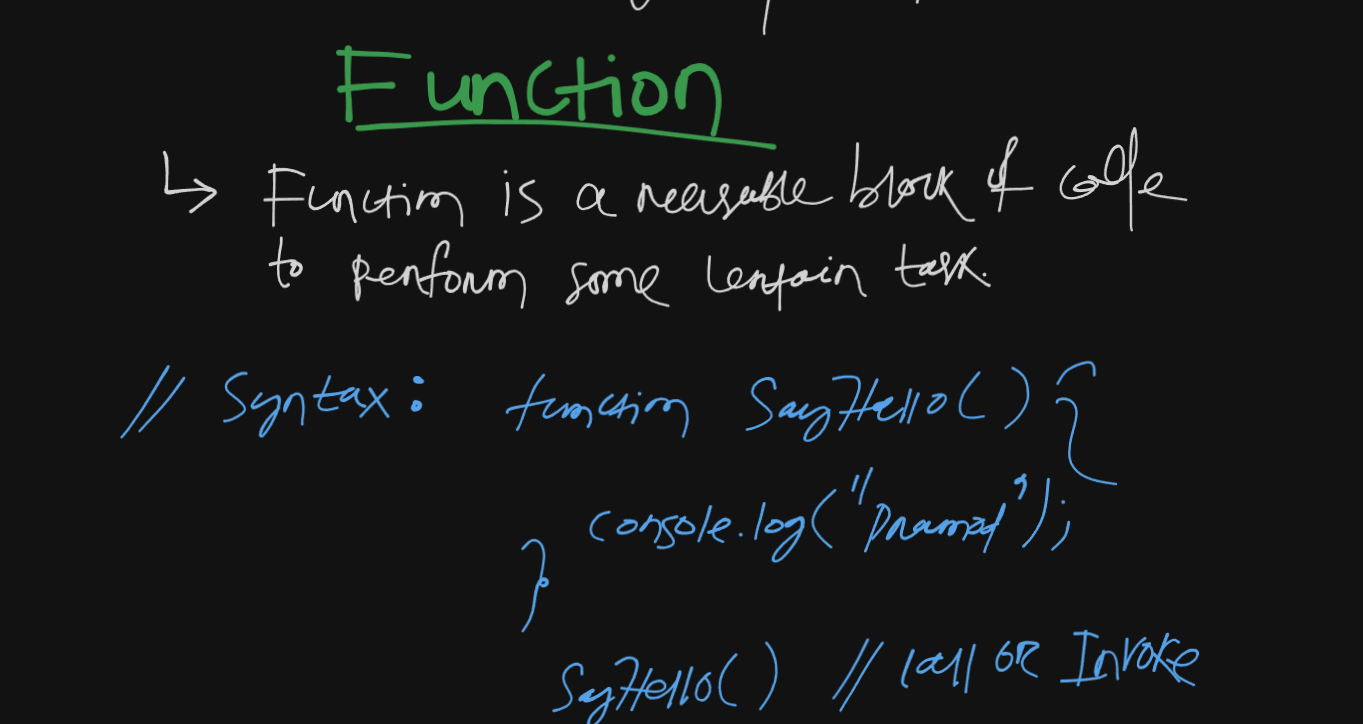 Function
↳ Function is a reusable block of code
to perform some certain task.
// Syntax: function SayHello() {
console.log("Pramod");
}
SayHello() // Call OR Invoke